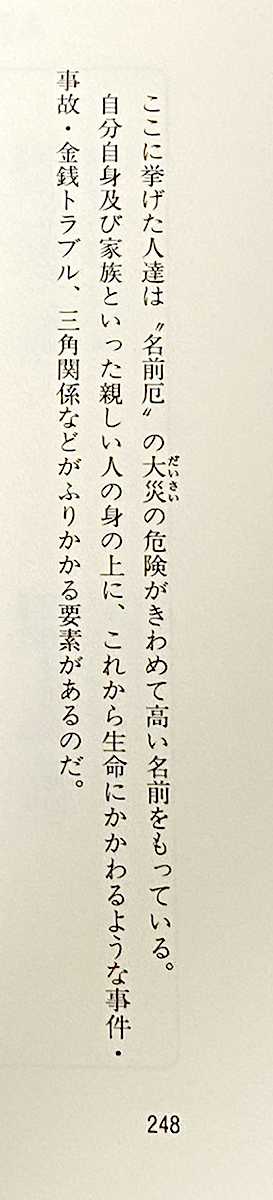 ここに挙げた人達は〝名前厄〟の大災の危険がきわめて高い名前をもっている。
だいさい
自分自身及び家族といった親しい人の身の上に、これから生命にかかわるような事件・
事故・金銭トラブル、三角関係などがふりかかる要素があるのだ。
248